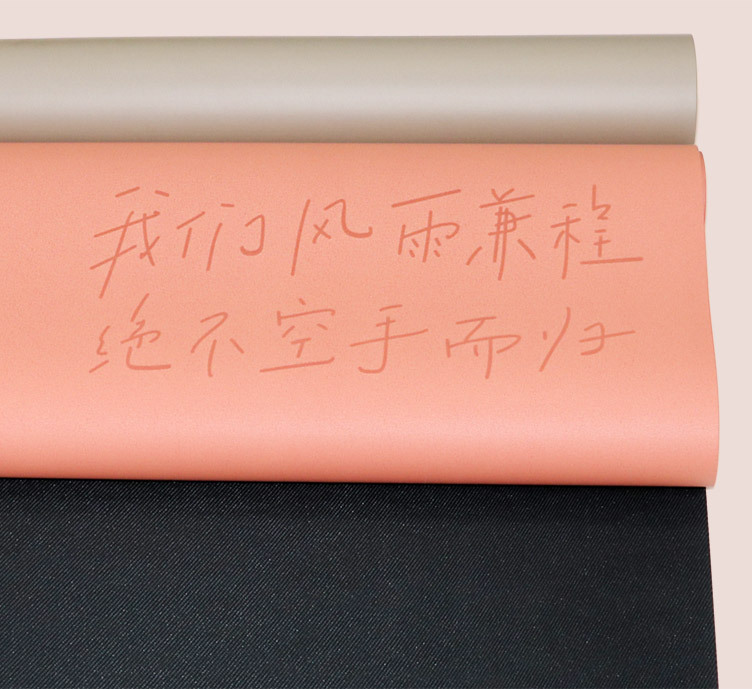 我们风雨兼程
绝不空手而归